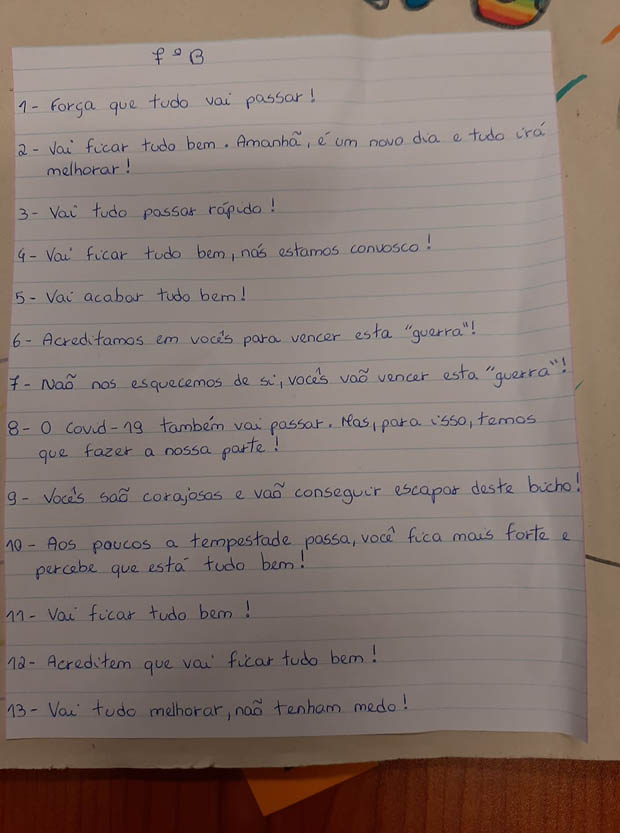 7ºB
1- Força que tudo vai passar!
2- Vai ficar tudo bem. Amanhã, é um novo dia e tudo irá
melhorar!
3- Vai tudo passar rápido!
4- Vai ficar tudo bem, nós estamos convosco!
5- Vai acabar tudo bem!
6- Acreditamos em vocês para vencer esta "guerra"!
7- Não nos esquecemos de si, vocês vão vencer esta "guerra"!
8- O Covid-19 também vai passar. Mas, para isso, temos
que fazer a nossa parte!
9- Vocês são corajosas e vão conseguir escapar deste bicho!
10- Aos poucos a tempestade passa, você fica mais forte e
percebe que está tudo bem!
11- Vai ficar tudo bem!
12- Acreditem que vai ficar tudo bem!
13- Vai tudo melhorar, não tenham medo!